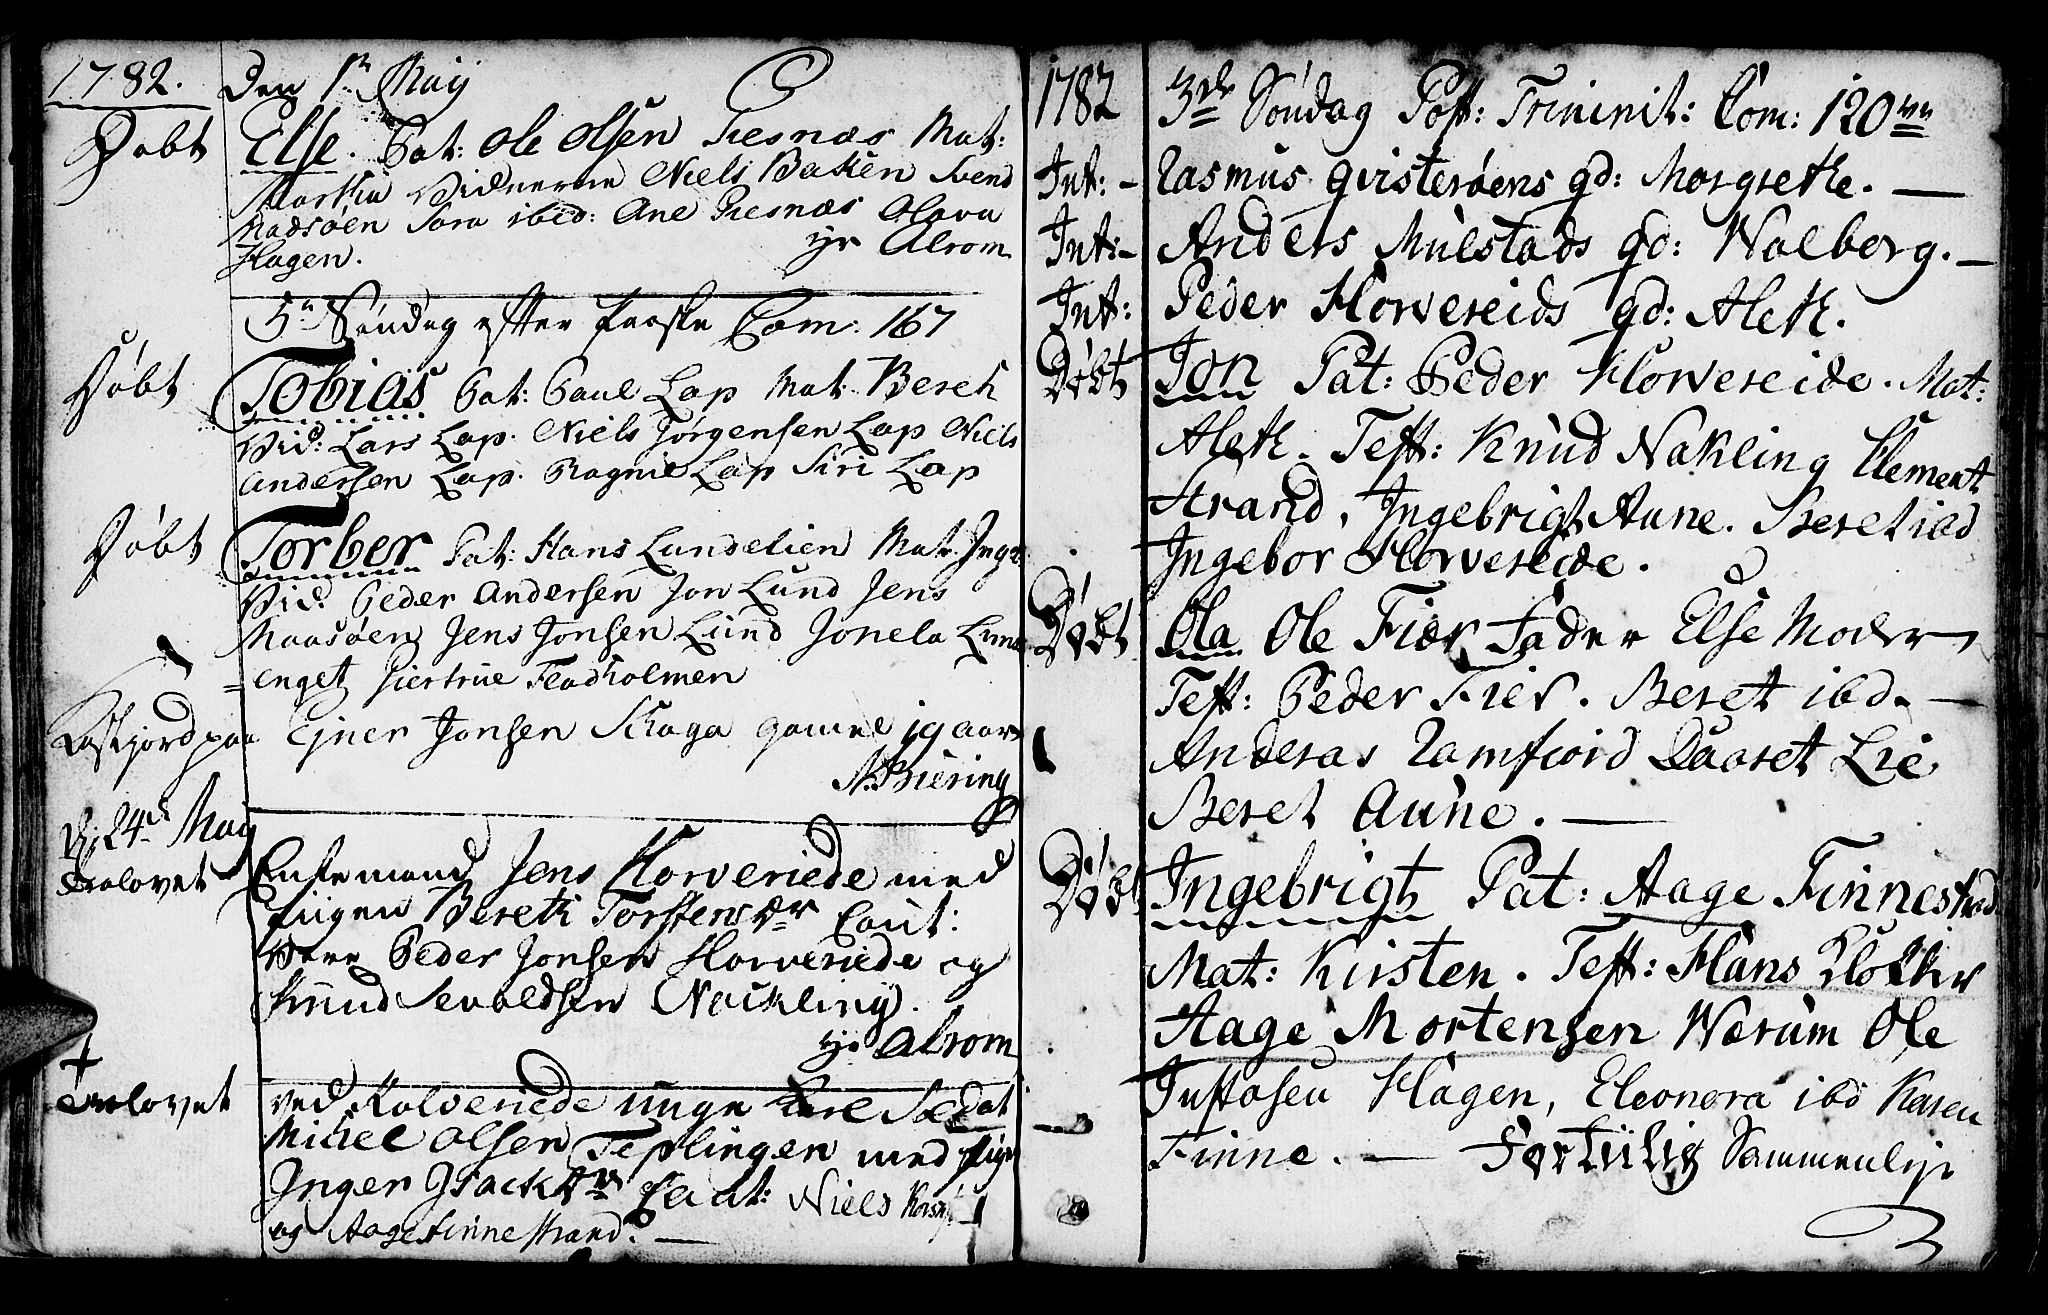 1782. Den 1te Maÿ
Døbt Else. Pat: Ole Olsen Presnæs Mat:
Martha Vidnerne Niels Baken Svend
Madsøen Sara ibid: Ane Presnæs Olava
Hagen. Alrom
5te Søndag efter Paaske Com: 167
Døbt Tobias Pat: Paul Lap Mat: Bereth
Vid: Lars Lap. Niels Jørgensen Lap Niels
Andersen Lap. Ragnil Lap Siri Lap
Døbt Torber Pat: Hans Lundelien Mat:
Vid: Peder Andersen Jon Lund Jens
Maasøen Jens Jonsen Lund Jonela Lund
enget Giertrue
Ejner Jonsen Skaga gamel 19 aar
N. Briering
D: 24de Maÿ
Trolovet Enkemand Jens Horveriede med
Pigen Bereth Torstensdr Caut:
Vare Peder Jonsen Horveriede og
Knud Sevaldsen Nackling.
Alrom
Trolovet ved Kolveriede unge Karl
Mickel Olsen Teplingen med Pige
Inger Isacksdr Caut: Niels
og Aage Finnestrand.
1782 3die Søndag Post: Trininit: Com: 120
Int: Rasmus Qvisterøens qd: Margrethe.
Int: Anders Mulstads qd: Walborg.
Int: Peder Horvereids qd: Aleth.
Døbt Jon Pat: Peder Horvereide. Mat:
Aleth. Test: Knud Nakling Clement
Strand, Ingebrigt Aune. Beret ibd
Ingebor Horvereide.
Døbt Ola Ole Fier Fader Else Moder
Test: Peder Fier. Beret ibd.
Anderas Ramfiord Daaret Lie
Beret Aune.
Døbt Ingebrigt Pat: Aage Finnestrand
Mat: Kirsten. Test: Hans Klokker
Aage Mortensen Wærum Ole
Justasen Hagen, Eleonora ibd Karen
Finne.